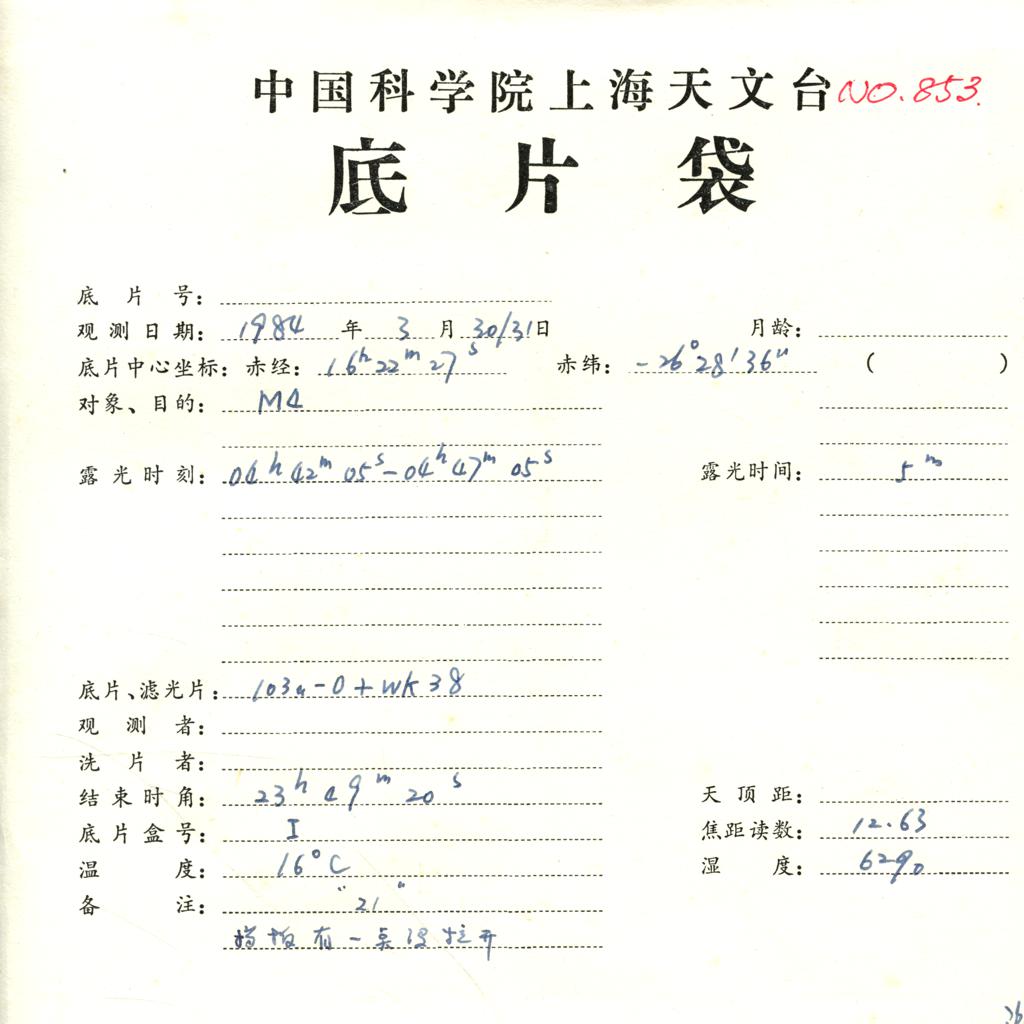 中国科学院上海天文台 NO.853.
底片袋
底片号:
观测日期: 1984 年 3 月 30/31日 月龄:
底片中心坐标: 赤经: 16h22m27s 赤纬: -26°28'36" ( )
对象、目的: M4
露光时刻: 04h42m05s-04h47m05s 露光时间: 5m
底片、滤光片: 103a-O+WK38
观测者:
洗片者:
结束时角: 23h49m20s 天顶距:
底片盒号: I 焦距读数: 12.63
温度: 16°C 湿度: 62%
备注: "21"
挡板有一点没拉开